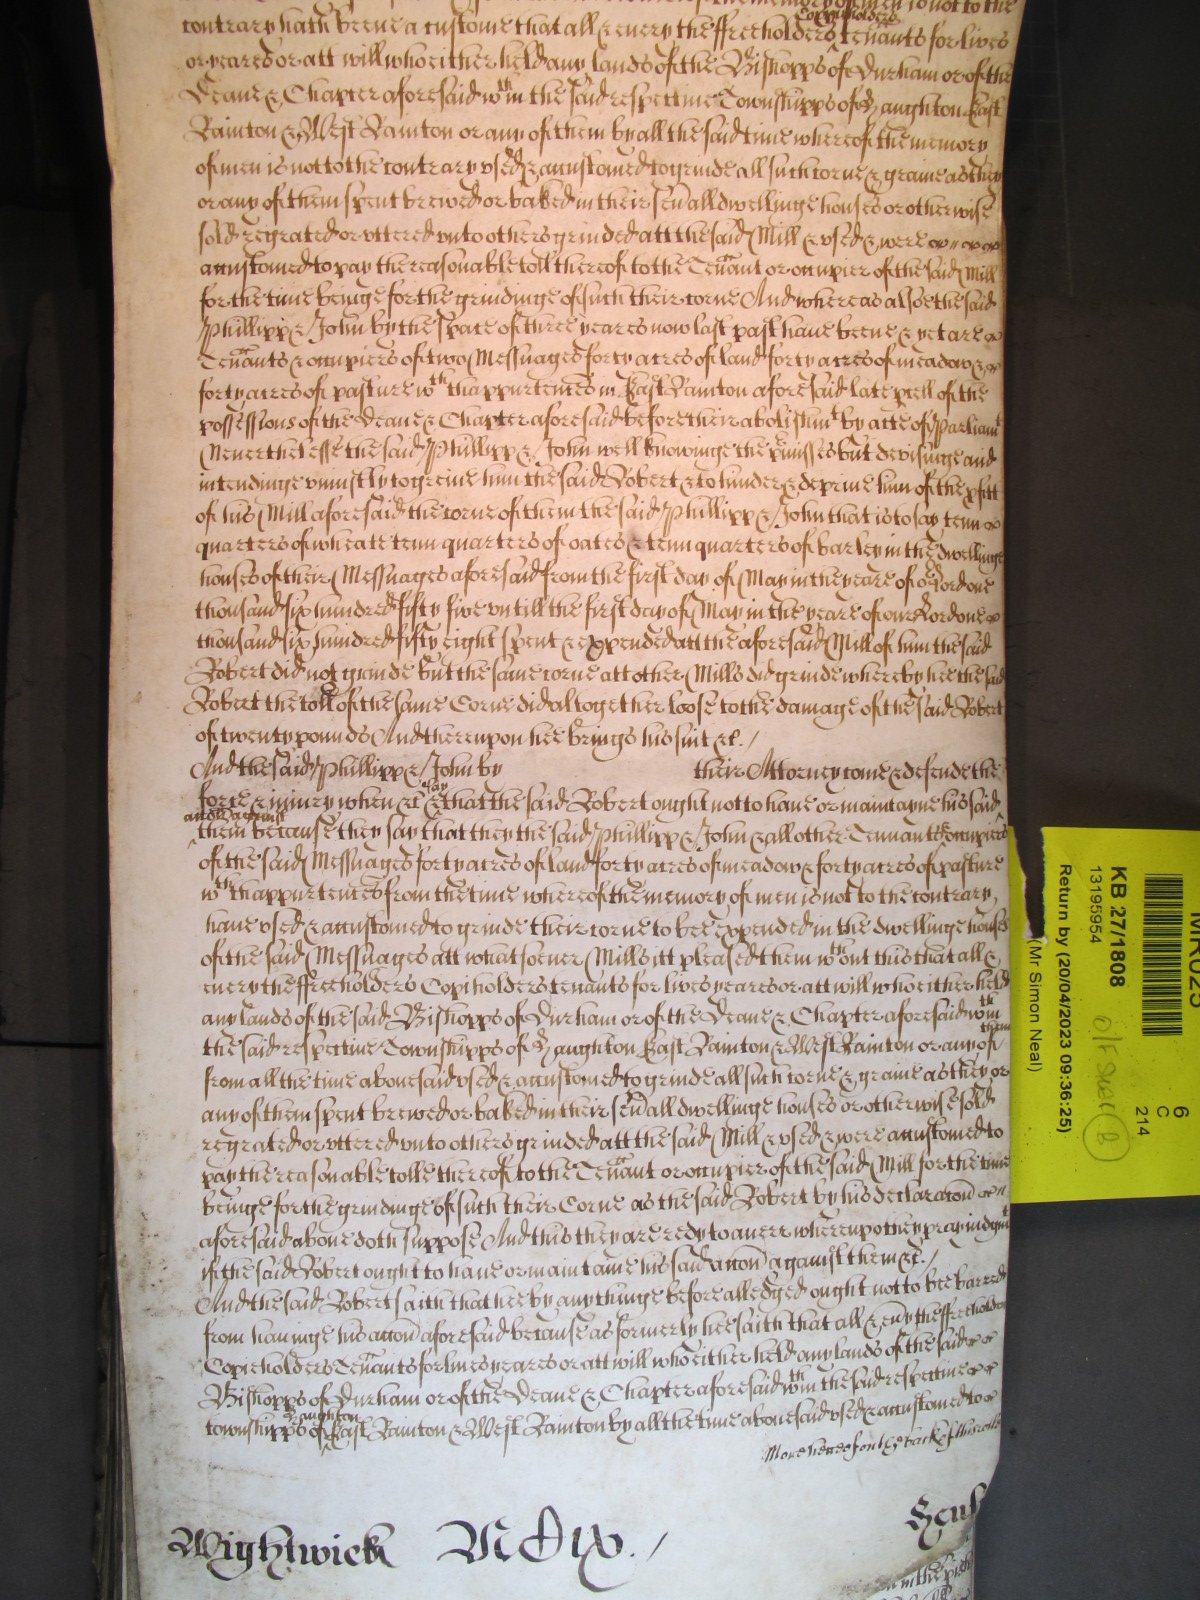 contrary hath beene a custome that all & every the ffreeholders Coppiholders tenants for lives
or yeares or att will who either held any lands of the Bishopps of Durham or of the
Deane & Chapter aforesaid wthin the said respective Townshipps of Haughton East
Rainton & West Rainton or any of them by all the said time whereof the memory
of men is not to the contrary vsed & accustomed to grinde all such corne & graine as they
or any of them spent brewed or baked in their seūall dwellinge houses or otherwise
sold regrated or vttered vnto others grinded att the said Mill & vsed & were
accustomed to pay the reasonable toll thereof to the Tenant or occupier of the said Mill
for the time beinge for the grindinge of such their corne And whereas alsoe the said
Phillipp & John by the space of three yeares now last past have beene & yet are
Tenants & occupiers of two Messuages forty acres of land forty acres of meadow &
forty acres of pasture wth thappurtenc̄es in East Rainton aforesaid late pcell of the
possessions of the Deane & Chapter aforesaid before their abolishmt by acte of Parliamt
Neverthelesse the said Phillipp & John well knowinge the pmisses but devisinge and
intendinge vniustly to greive him the said Robert & to hinder & deprive him of the pfitt
of his Mill aforesaid the corne of them the said Phillipp & John that is to say tenn
quarters of wheate tenn quarters of oates & tenn quarters of barley in the dwellinge
houses of their Messuages aforesaid from the first day of May in the yeare of or Lord one
thousand six hundred fifty five vntill the first day of May in the yeare of our Lord one
thousand six hundred fifty eight spent & expended att the aforesaid Mill of him the said
Robert did not grinde but the same corne att other Mills did grinde whereby hee the said
Robert the toll of the same Corne did altogether loose to the damage of the said Robert
of twenty pounds And thereupon hee brings his suit &c./
And the said Phillipp & John by their Attorney come & defende the
force & iniury when &c & say that the said Robert ought not to have or maintayne his said
accon against them because they say that they the said Phillipp & John & all other Tennants & occupiers
of the said Messuages forty acres of land forty acres of meadow & forty acres of pasture
wth thappurtenc̄es from the time whereof the memory of men is not to the contrary
have vsed & accustomed to grinde their corne to bee expended in the dwellinge houses
of the said Messuages att what soever Mills itt pleased them wthout this that all &
every the ffreeholders Copiholders tenants for lives yeares or att will who either held
any lands of the said Bishopps of Durham or of the Deane & Chapter aforesaid wthin
the said respective Townshipps of Haughton East Rainton & West Rainton or any of them
from all the time abovesaid vsed & accustomed to grinde all such corne & graine as they or
any of them spent brewed or baked in their seūall dwellinge houses or otherwise sold
regrated or vttered vnto others grinded att the said Mill & vsed & were accustomed to
pay the reasonable tolle thereof to the Tenant or occupier of the said Mill for the time
beinge for the grindinge of such their Corne as the said Robert by his declaracōn
aforesaid above doth suppose And this they are redy to averr whereupo they pray iudgmt
if the said Robert ought to have or maintaine his said accōn against them &c./
And the said Robert saith that hee by any thinge before alledged ought not to bee barred
from havinge his accōn aforesaid because as formerly hee saith that all & evy the ffreeholders
Copieholders Tenants for lives yeares or att will who either held any lands of the said
Bishopps of Durham or of the Deane & Chapter aforesaid wthin the said respective
townshipps of Haughton East Rainton & West Rainton by all the time abovesaid vsed & accustomed to
More hereof on the backe of this roll
Wightwick MDix./
KB 27/1808
13195954
Return by (20/04/2023 09:36:25)
(Mr Simon Neal)
6
C
214
MR025